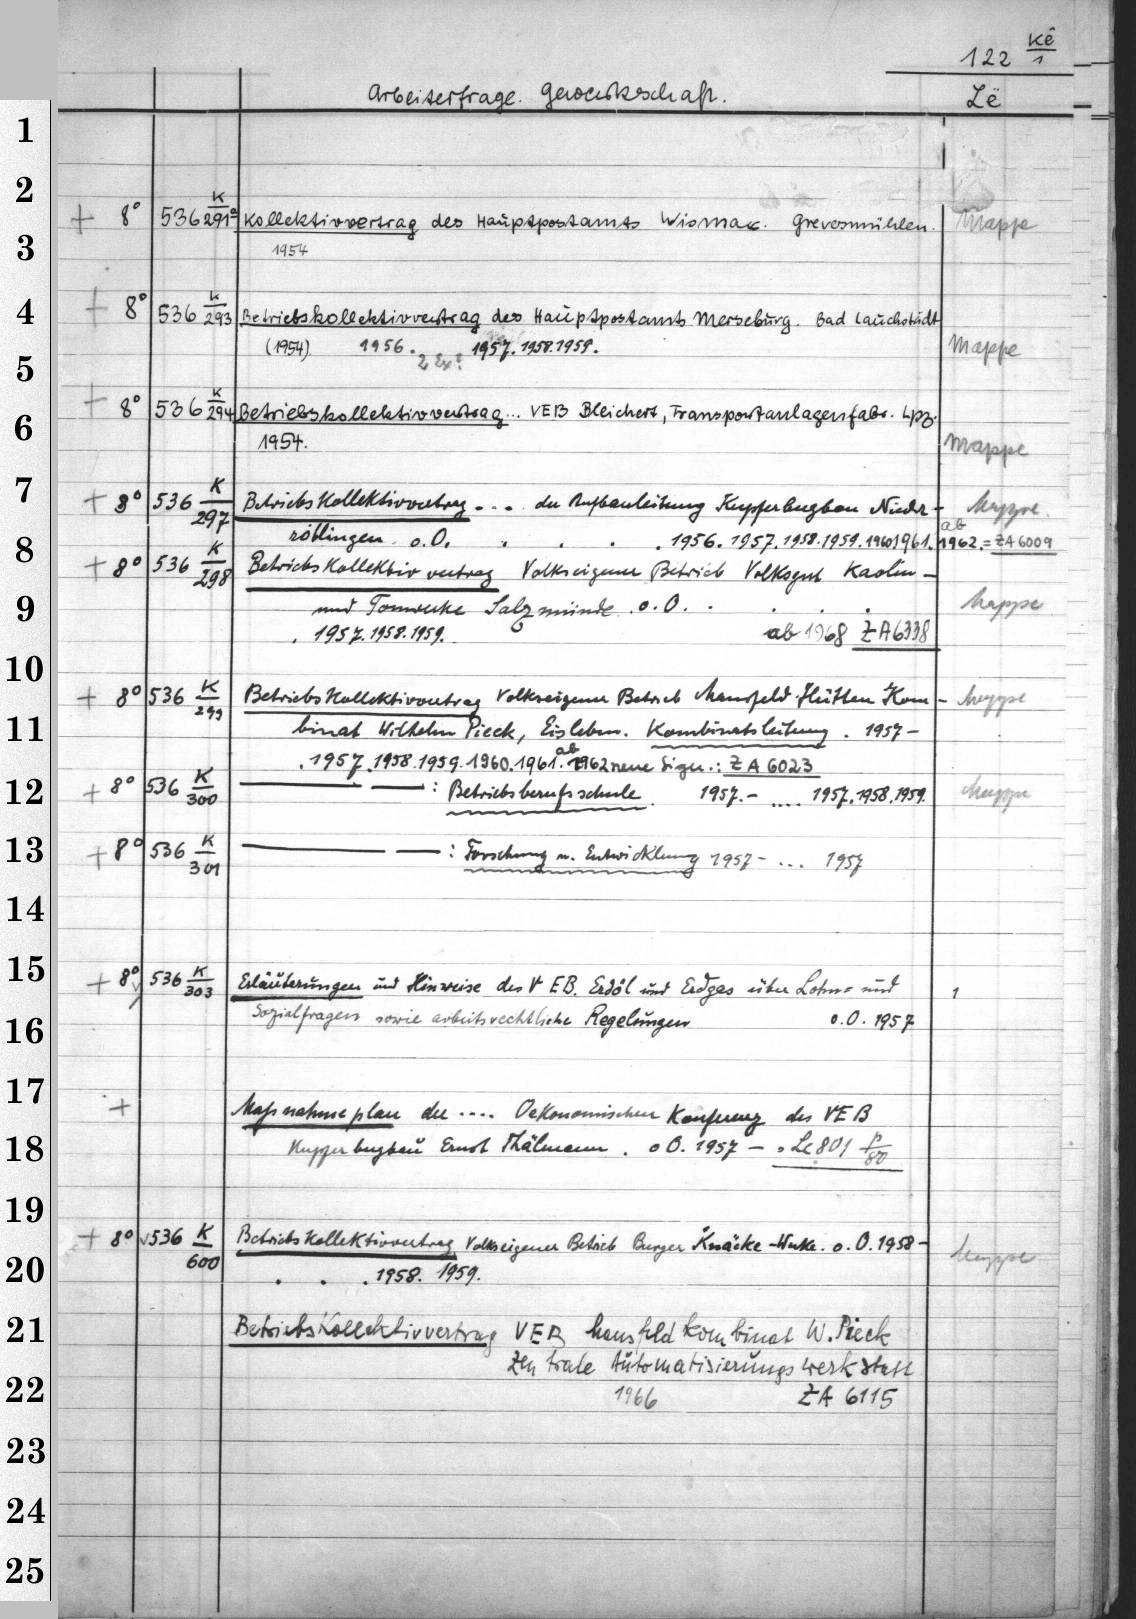 122 Kê/1
Arbeiterfrage. Gewerkschaft. Zë
1
2
+ 8° 536 K/291a Kollektivvertrag des Hauptpostamts Wismar. Grevesmühlen. Mappe
3 1954
4 + 8° 536 K/293 Betriebskollektivvertrag des Hauptpostamts Merseburg. Bad Lauchstädt
(1954) 1956. 2 Ex. 1957. 1958. 1959. Mappe
5
+ 8° 536 K/294 Betriebskollektivvertrag... VEB Bleichert, Transportanlagenfabr. Lpz.
6 1954. Mappe
7 + 8° 536 K/297 Betriebskollektivvertrag .... der Aufbauleitung Kupferbergbau Nieder- Mappe.
8 röblingen. o.O. . . . . 1956. 1957. 1958. 1959. 1960 1961. ab 1962. = ZA 6009
+ 8° 536 K/298 Betriebskollektivvertrag Volkseigener Betrieb Volksgut Kaolin-
9 und Tonwerke Salzmünde. o.O. . . . . Mappe
. 1957. 1958. 1959. ab 1968 ZA 6338
10 + 8° 536 K/299 Betriebskollektivvertrag Volkseigener Betrieb Mansfeld-Hütten Kom- Mappe
11 binat Wilhelm Pieck, Eisleben. Kombinatsleitung. 1957-
. 1957. 1958. 1959. 1960. 1961. ab 1962 neue Sign.: ZA 6023
12 + 8° 536 K/300 ——— —— : Betriebsberufsschule. 1957.- .... 1957. 1958. 1959. Mappe
13 + 8° 536 K/301 ——— —— : Forschung u. Entwicklung 1957- ... 1957
14
15 + 8° 536 K/303 Erläuterungen und Hinweise des VEB. Erdöl und Erdgas über Lohn= und 1
16 Sozialfragen sowie arbeitsrechtliche Regelungen o.O. 1957
17 + Maßnahmeplan der .... Oekonomischen Konferenz des VEB
18 Kupferbergbau Ernst Thälmann. o O. 1957 -
19
+ 8° 536 K/600 Betriebskollektivvertrag Volkseigener Betrieb Burger Knäcke-Werke. o.O. 1958- Mappe
20 . . . 1958. 1959.
21 Betriebskollektivvertrag VEB Mansfeldkombinat W. Pieck
Zentrale Automatisierungswerkstatt
22 1966 ZA 6115
23
24
25